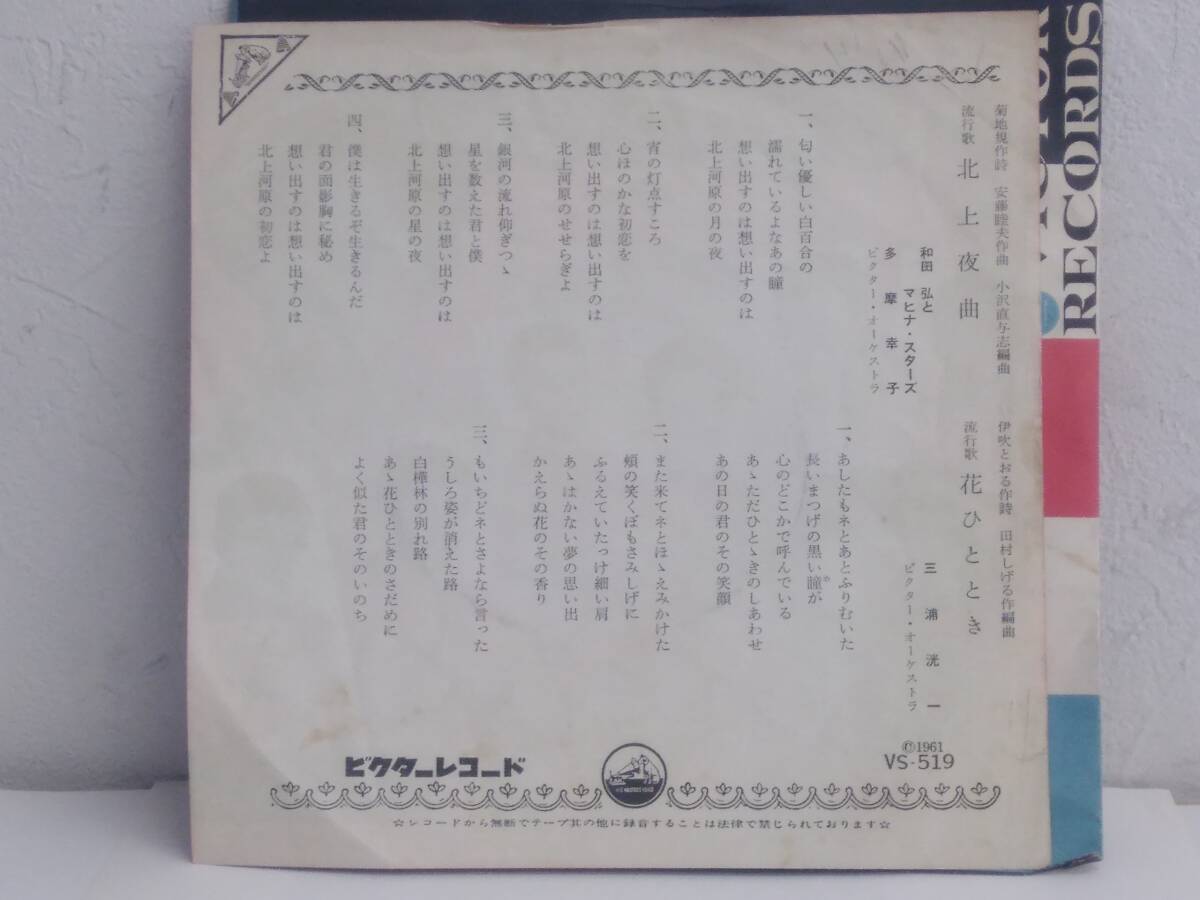 菊地規作詩　安藤睦夫作曲　小沢直与志編曲
流行歌　北上夜曲
和田　弘と
マヒナ・スターズ
多摩幸子
ビクター・オーケストラ
一、匂い優しい白百合の
濡れているよなあの瞳
想い出すのは想い出すのは
北上河原の月の夜
二、宵の灯点すころ
心ほのかな初恋を
想い出すのは想い出すのは
北上河原のせせらぎよ
三、銀河の流れ仰ぎつゝ
星を数えた君と僕
想い出すのは想い出すのは
北上河原の星の夜
四、僕は生きるぞ生きるんだ
君の面影胸に秘め
想い出すのは想い出すのは
北上河原の初恋よ
伊吹とおる作詩　田村しげる作編曲
流行歌　花ひととき
三浦洸一
ビクター・オーケストラ
一、あしたもネとあとふりむいた
長いまつげの黒い瞳が
心のどこかで呼んでいる
あゝただひとゝきのしあわせ
あの日の君のその笑顔
二、また来てネとほゝえみかけた
頬の笑くぼもさみしげに
ふるえていたっけ細い肩
あゝはかない夢の思い出
かえらぬ花のその香り
三、もいちどネとさよなら言った
うしろ姿が消えた路
白樺林の別れ路
あゝ花ひとときのさだめに
よく似た君のそのいのち
ビクターレコード
HIS MASTER'S VOICE
Ⓒ1961
VS-519
☆レコードから無断でテープ其の他に録音することは法律で禁じられております☆
RECORDS